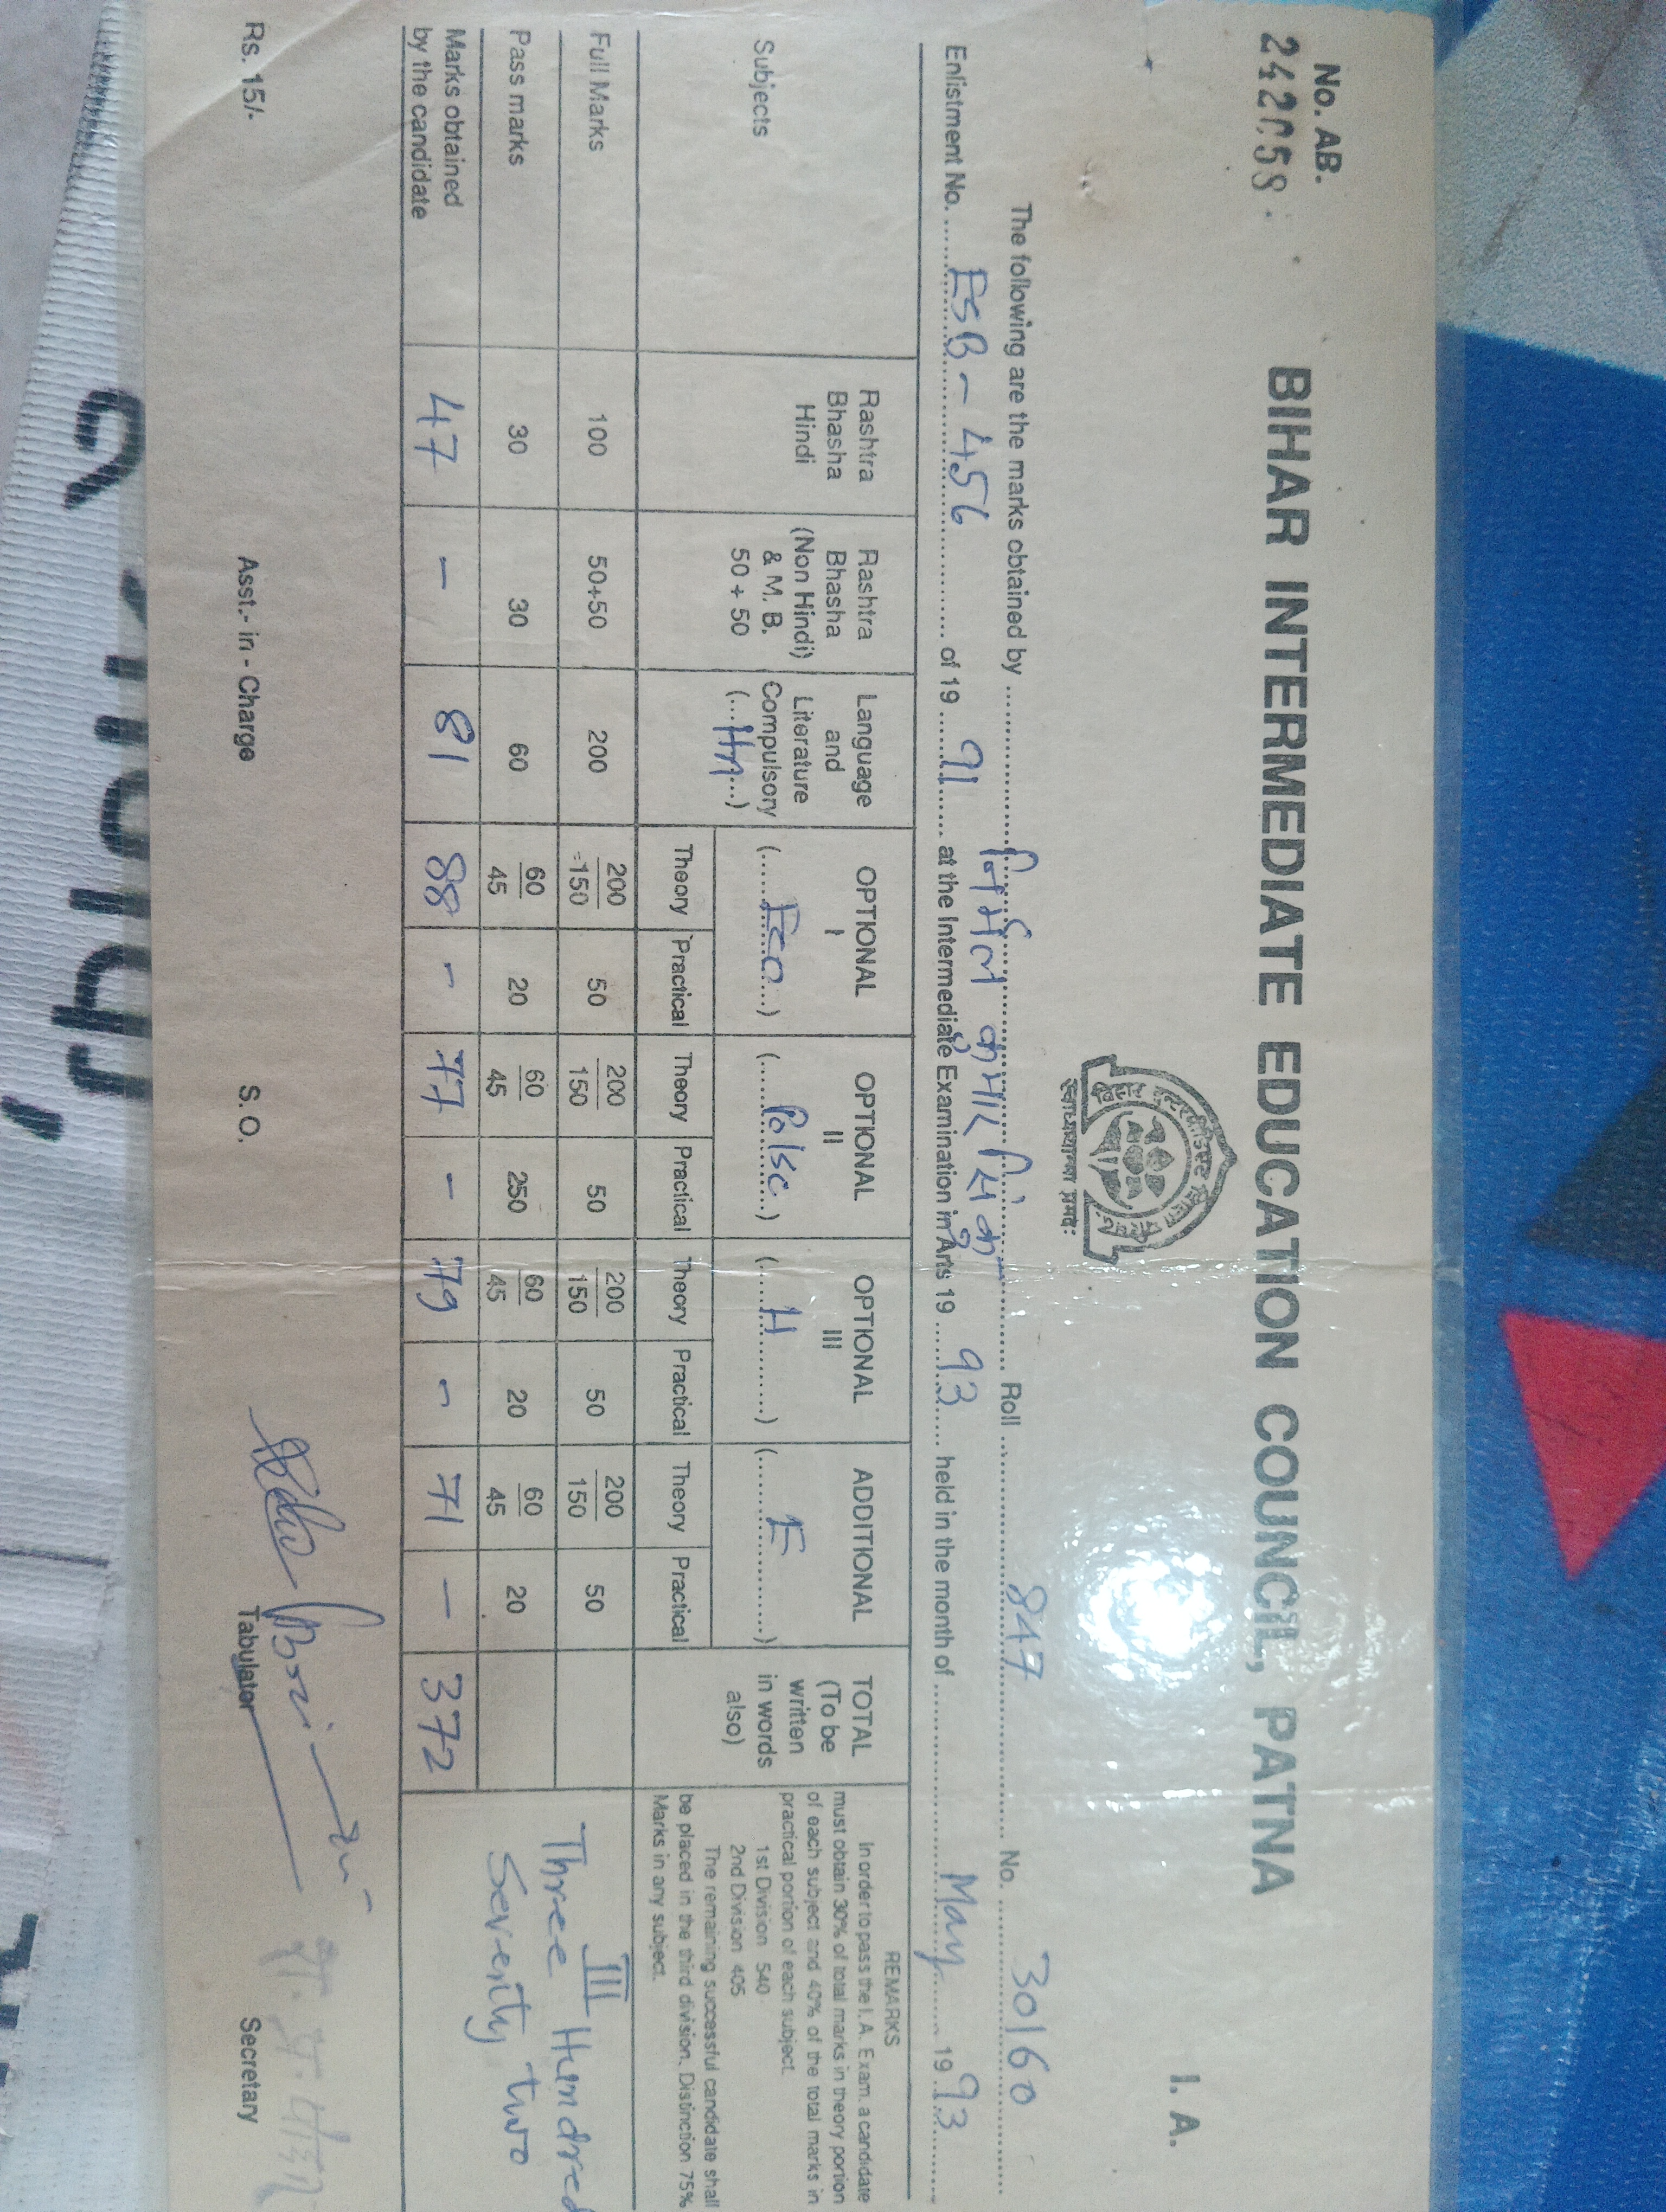 No. AB.
242058
BIHAR INTERMEDIATE EDUCATION COUNCIL, PATNA
I. A.
स्वाध्यायान्मा प्रमदः
The following are the marks obtained by निर्मल कुमार सिंह Roll 847 No. 30160
Enlistment No. ESB - 456 of 19 91 at the Intermediate Examination in Arts 19 93 held in the month of May 19 93
Subjects
Rashtra Bhasha Hindi
Rashtra Bhasha (Non Hindi) & M. B. 50 + 50
Language and Literature Compulsory (...Hn...)
OPTIONAL I (...Eco...) Theory Practical
OPTIONAL II (...Polsc...) Theory Practical
OPTIONAL III (...H...) Theory Practical
ADDITIONAL (...E...) Theory Practical
TOTAL (To be written in words also)
REMARKS
In order to pass the I. A. Exam. a candidate
must obtain 30% of total marks in theory portion
of each subject and 40% of the total marks in
practical portion of each subject.
1st Division 540
2nd Division 405
The remaining successful candidate shall
be placed in the third division. Distinction 75%
Marks in any subject.
Full Marks 100 50+50 200 200/150 50 200/150 50 200/150 50 200/150 50
Pass marks 30 30 60 60/45 20 60/45 250 60/45 20 60/45 20
Marks obtained by the candidate 47 – 81 88 – 77 – 79 – 71 – 372
III
Three Hundred
Seventy two
Rs. 15/-
Asst.- in - Charge
S. O.
Tabulator
Secretary